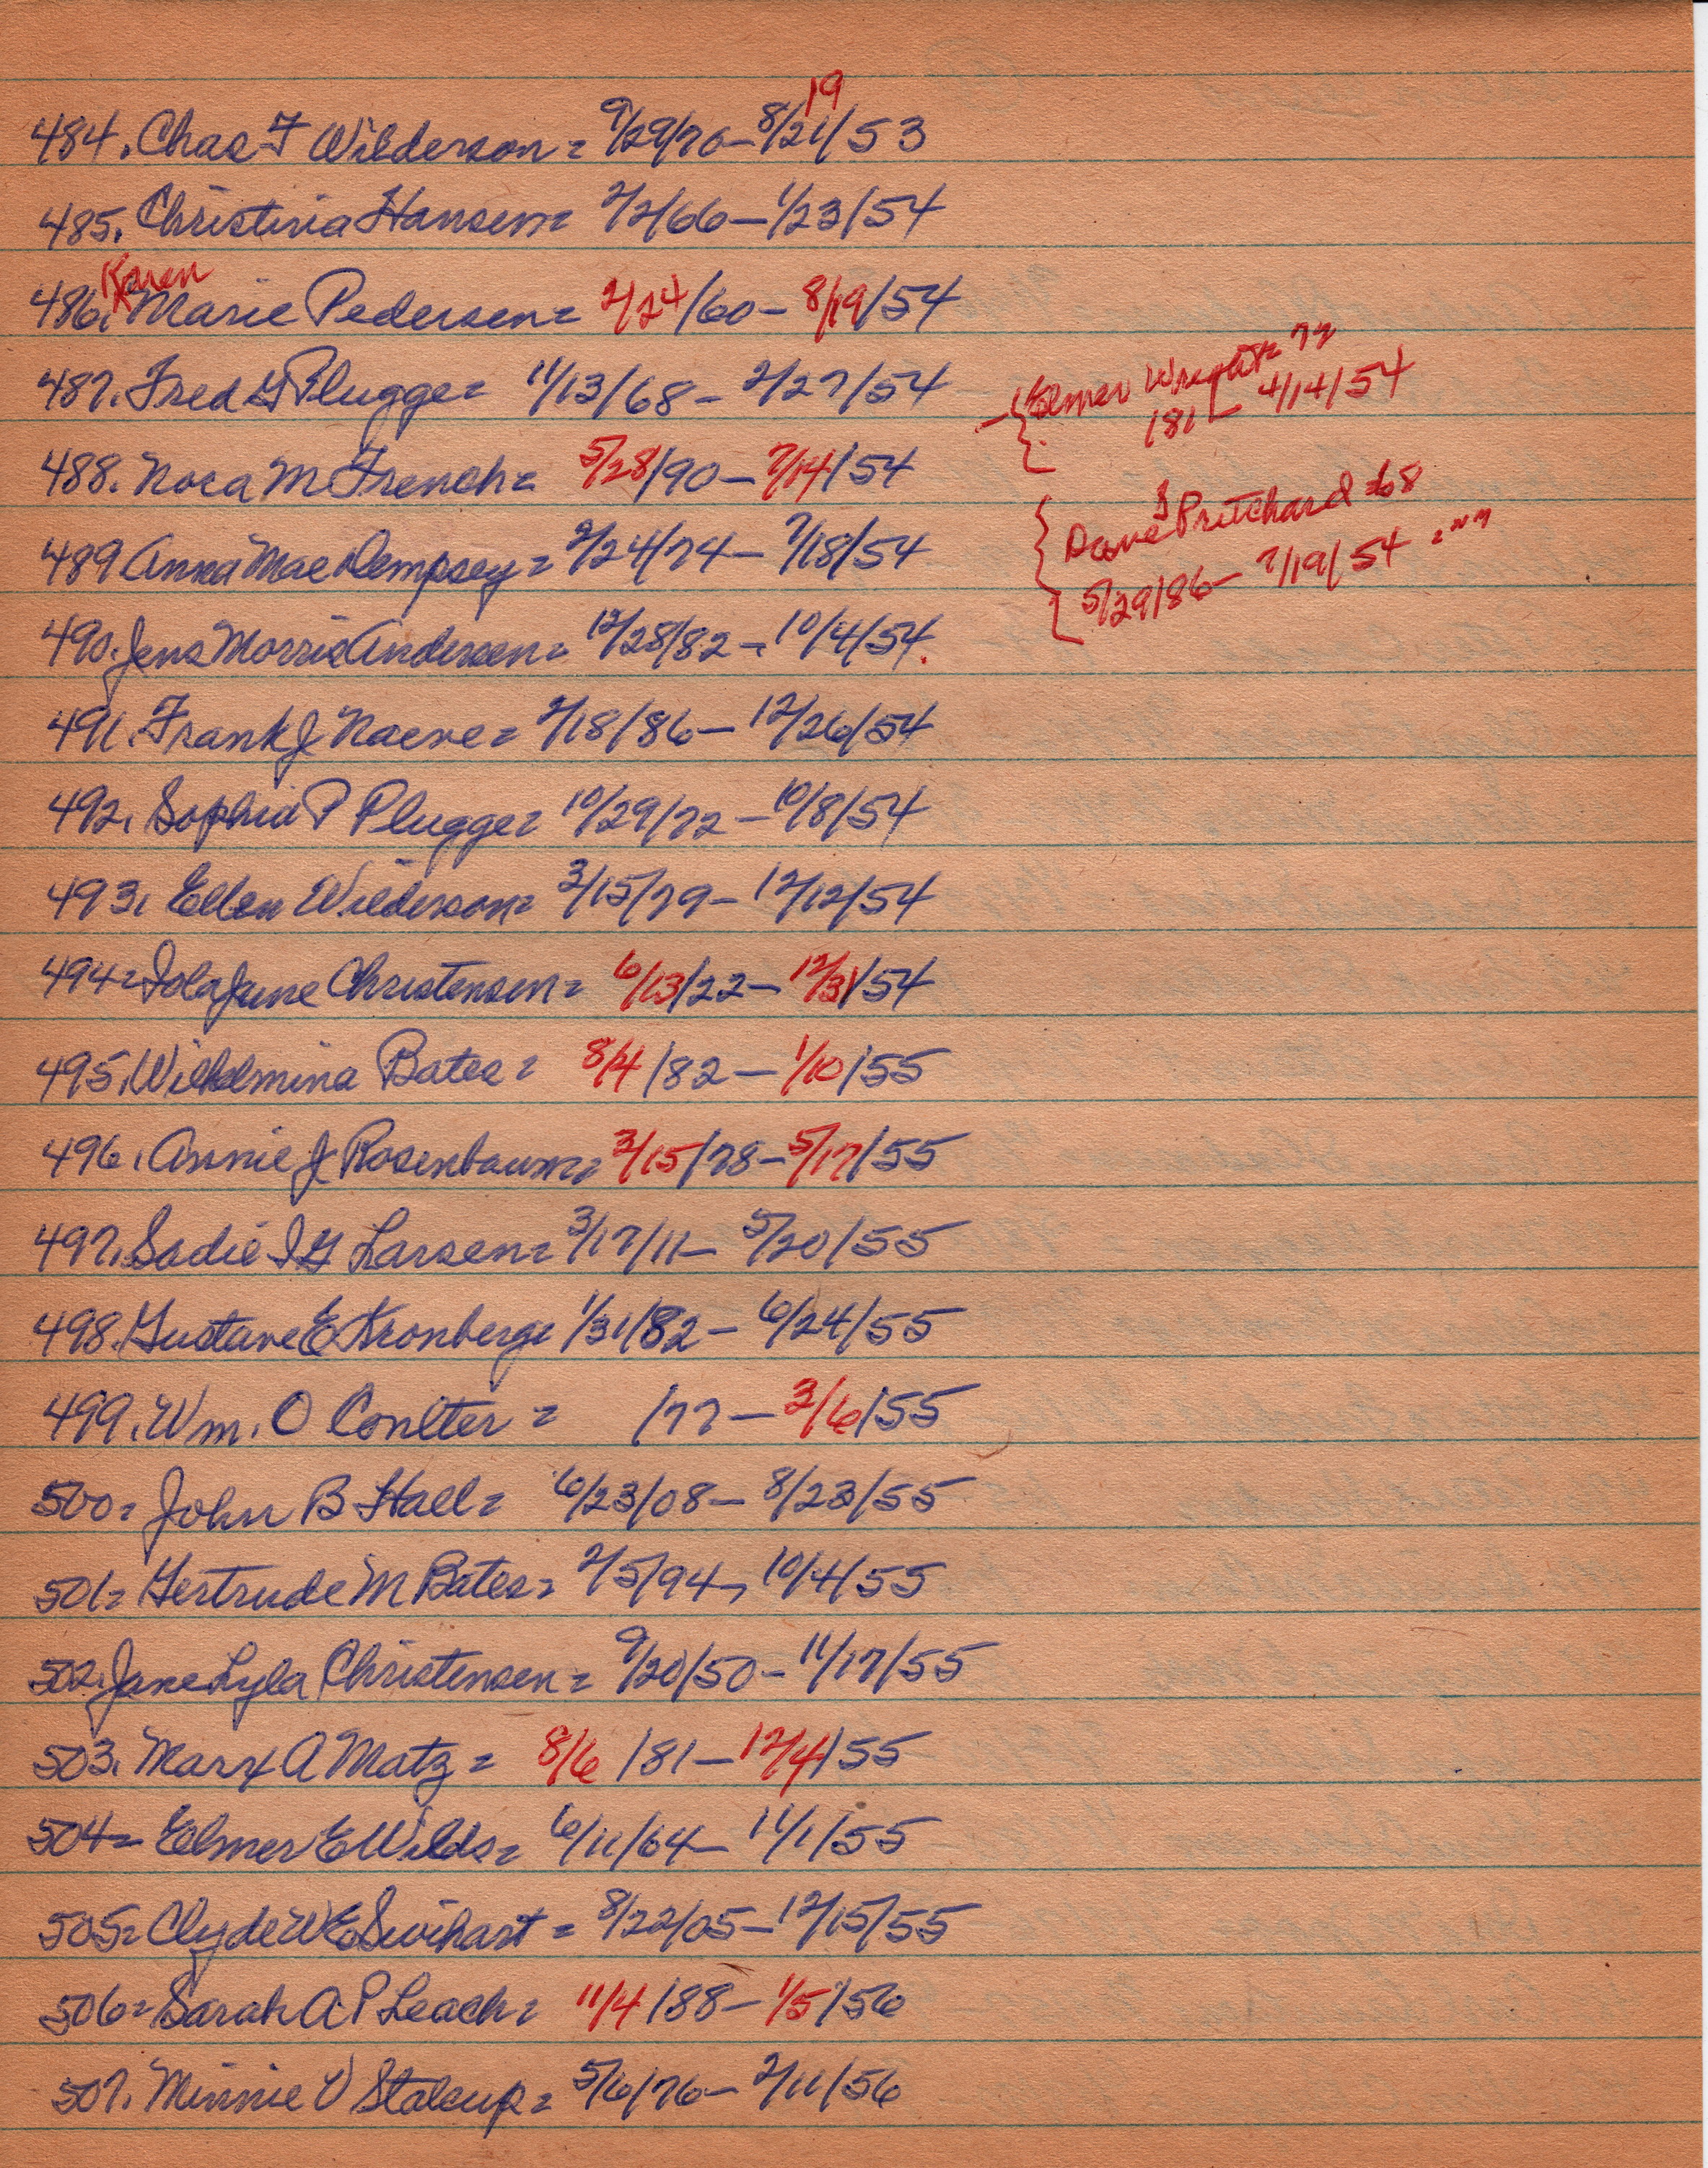 19
484. Chas F Wilderson = 9/29/76 - 8/21/53
485. Christina Hansen = 2/2/66 - 1/23/54
Karen
486. Marie Pedersen = 2/24/60 - 8/19/54
487. Fred G Plugge = 11/13/68 - 2/27/54
{Elmer Wright = 72
181 - 4/14/54
488. Nora M French = 5/28/90 - 7/14/54
{Dave J Pritchard = 68
5/29/86 - 7/19/54
489 Anna Mae Dempsey = 2/24/74 - 7/18/54
490. Jens Morris Andersen = 12/28/82 - 10/4/54.
491. Frank J Naeve = 2/18/86 - 12/26/54
492. Sophia P Plugge = 10/29/72 - 10/8/54
493. Ellen Wilderson = 3/15/79 - 12/12/54
494 = Iola June Christensen = 6/13/22 - 12/31/54
495. Wilhelmina Bates = 8/4/82 - 1/10/55
496. Annie J Rosenbaum = 3/15/78 - 5/17/55
497. Sadie I G Larsen = 3/17/11 - 5/20/55
498. Gustave E Kronberg = 1/31/82 - 6/24/55
499. Wm. O Coulter = /77 - 3/6/55
500 = John B Hall = 6/23/08 - 8/23/55
501 = Gertrude M Bates = 2/5/94 - 10/4/55
502. Jane Lyla Christensen = 9/20/50 - 11/17/55
503. Marx A Matz = 8/6/81 - 12/4/55
504 = Elmer E Wilds = 6/11/64 - 11/1/55
505 = Clyde W E Swihart = 8/22/05 - 12/15/55
506 = Sarah A P Leach = 11/4/88 - 1/5/56
507. Minnie V Stalcup = 5/6/76 - 2/11/56